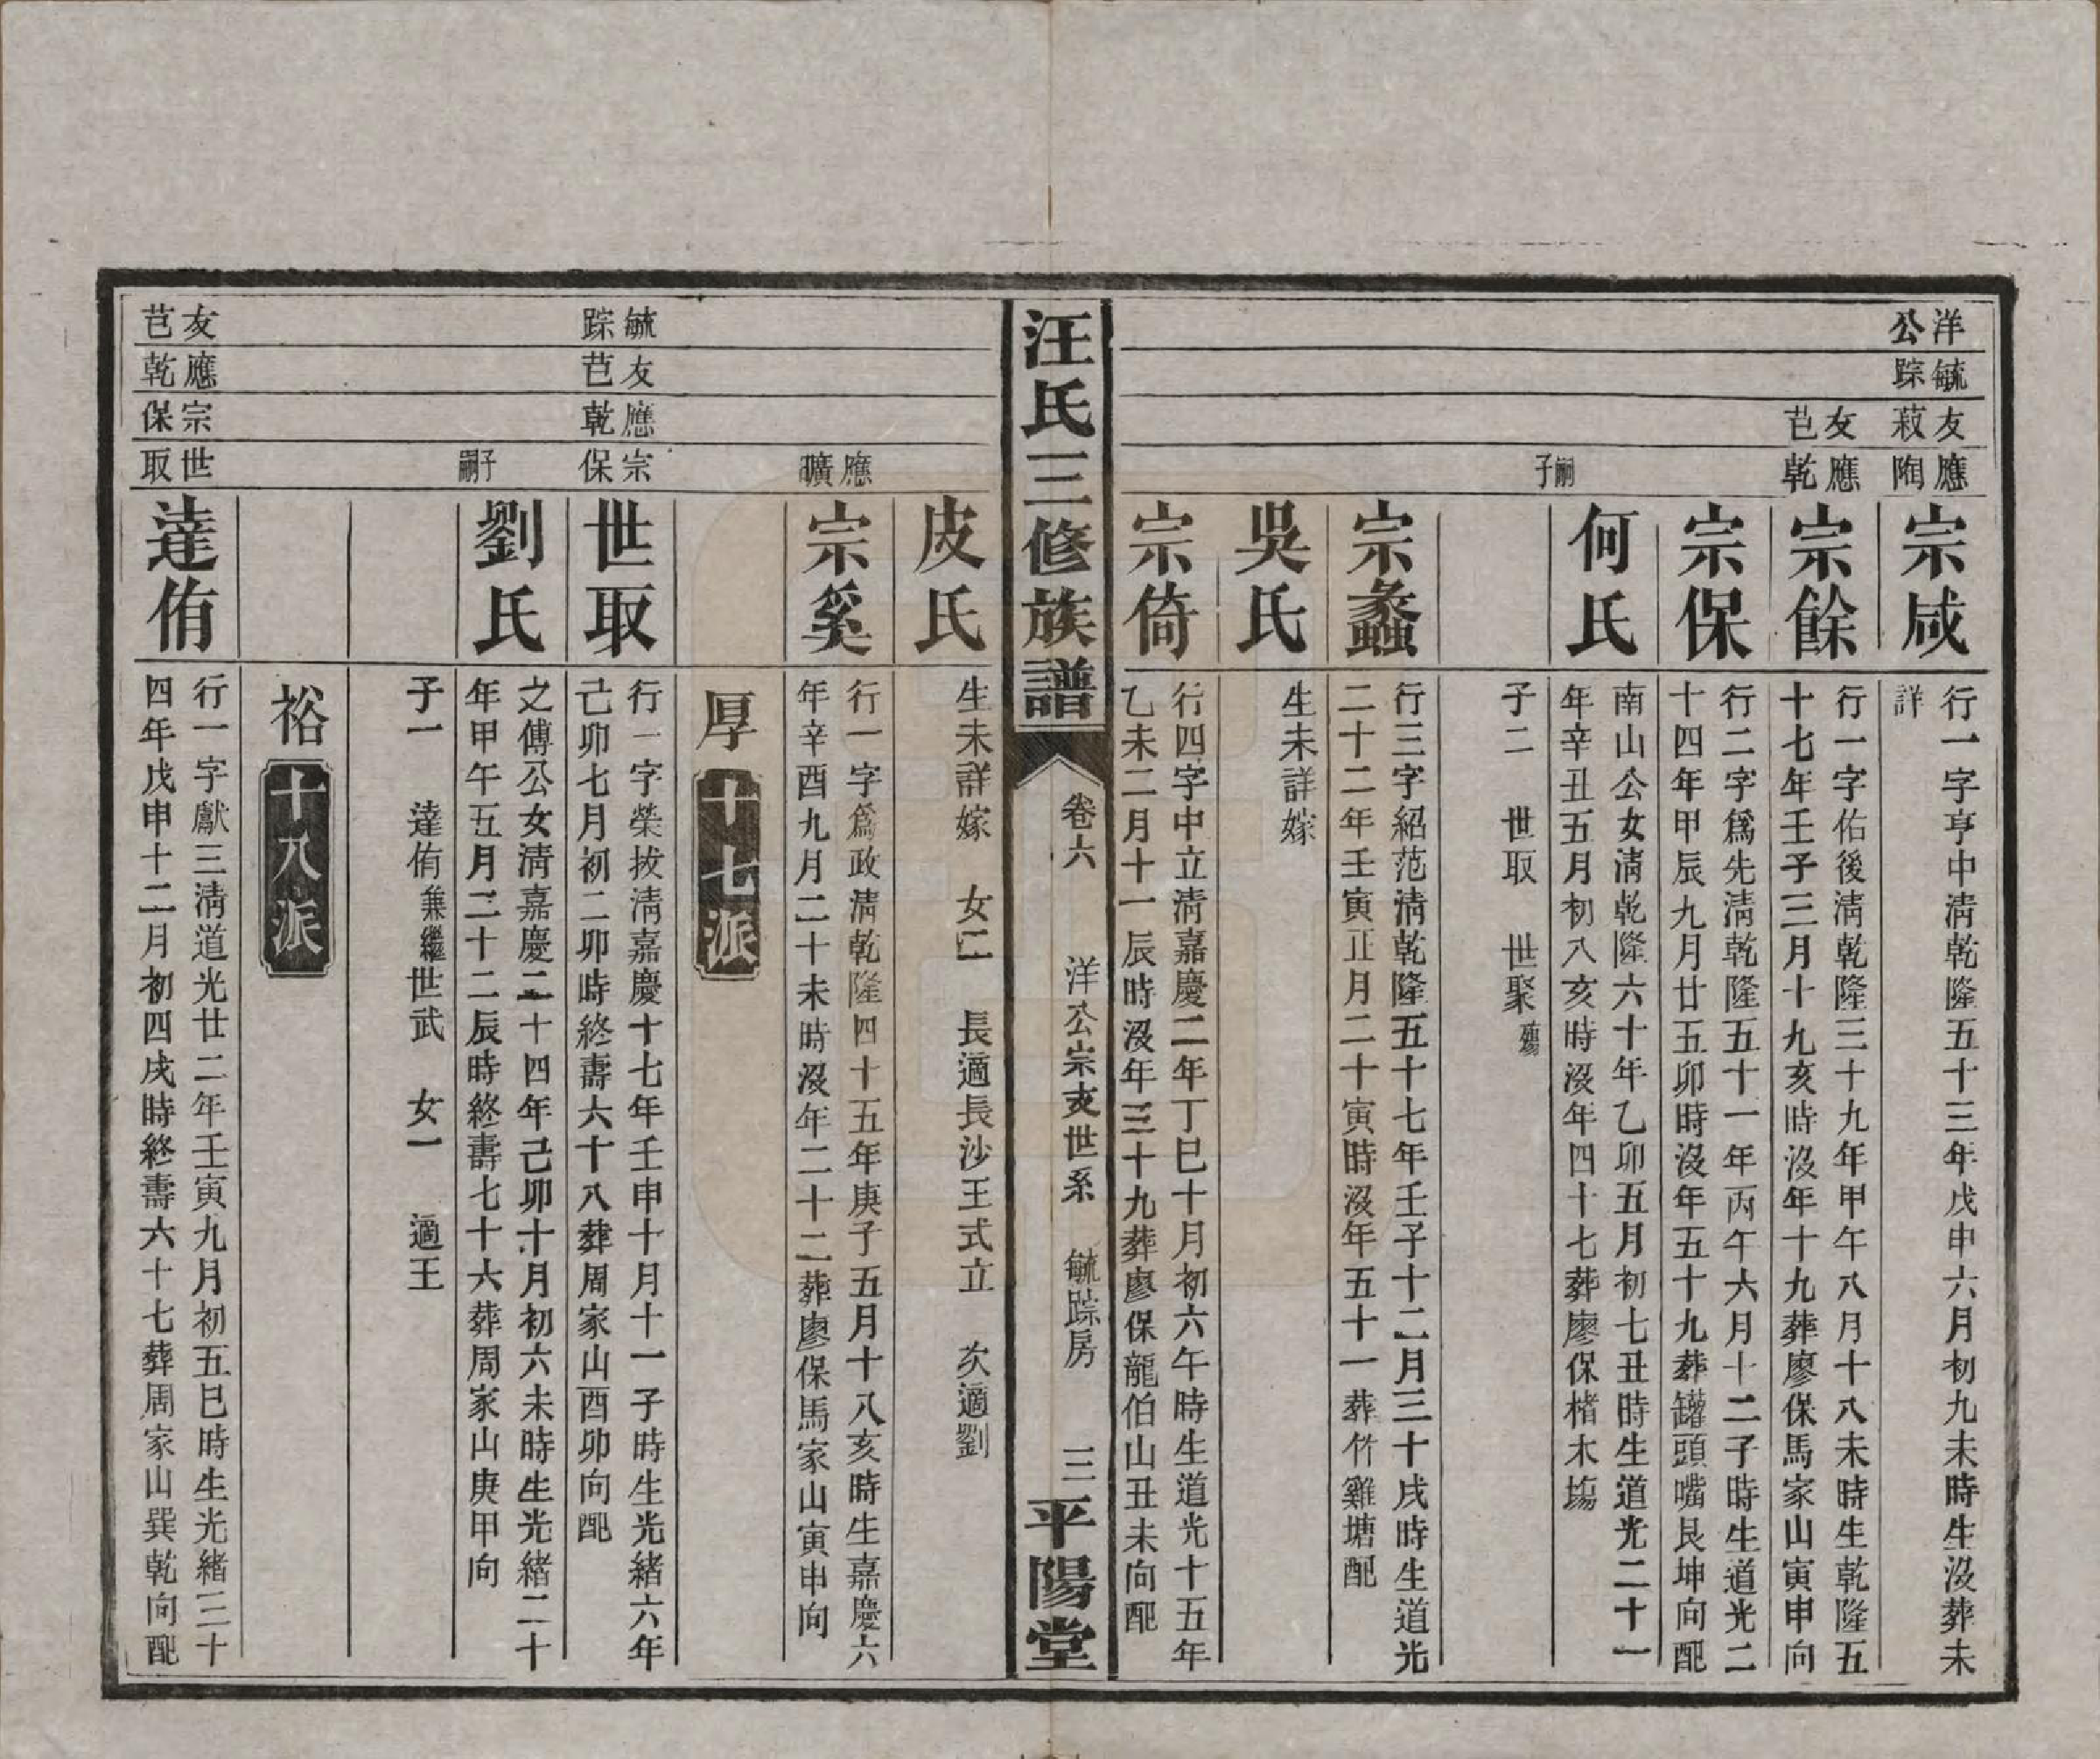 洋公
毓踪
友菽
應陶
宗咸
行一字亨中清乾隆五十三年戊申六月初九未時生沒葬未
詳
友芑
應乾
宗餘
行一字佑後清乾隆三十九年甲午八月十八未時生乾隆五
十七年壬子三月十九亥時沒年十九葬廖保馬家山寅申向
宗保
行二字爲先清乾隆五十一年丙午六月十二子時生道光二
十四年甲辰九月廿五卯時沒年五十九葬罐頭嘴艮坤向配
何氏
南山公女清乾隆六十年乙卯五月初七丑時生道光二十一
年辛丑五月初八亥時沒年四十七葬廖保楮木塲
嗣子
子二 世取 世聚殤
宗蠡
行三字紹范清乾隆五十七年壬子十二月三十戌時生道光
二十二年壬寅正月二十寅時沒年五十一葬竹雞塘配
吳氏
生未詳嫁
宗倚
行四字中立清嘉慶二年丁巳十月初六午時生道光十五年
乙未二月十一辰時沒年三十九葬廖保龍伯山丑未向配
汪氏三修族譜
卷六 洋公宗支世系 毓踪房 三
平陽堂
皮氏
生未詳嫁 女二 長適長沙王式立 次適劉
應曠
宗奚
行一字爲政清乾隆四十五年庚子五月十八亥時生嘉慶六
年辛酉九月二十未時沒年二十二葬廖保馬家山寅申向
厚 十七派
毓踪
友芑
應乾
宗保
世取
行一字榮拔清嘉慶十七年壬申十月十一子時生光緒六年
己卯七月初二卯時終壽六十八葬周家山酉卯向配
劉氏
之傅公女清嘉慶二十四年己卯十月初六未時生光緒二十
年甲午五月二十二辰時終壽七十六葬周家山庚甲向
子嗣
子一 達侑兼繼世武 女一 適王
裕 十八派
友芑
應乾
宗保
世取
達侑
行一字獻三清道光廿二年壬寅九月初五巳時生光緒三十
四年戊申十二月初四戌時終壽六十七葬周家山巽乾向配